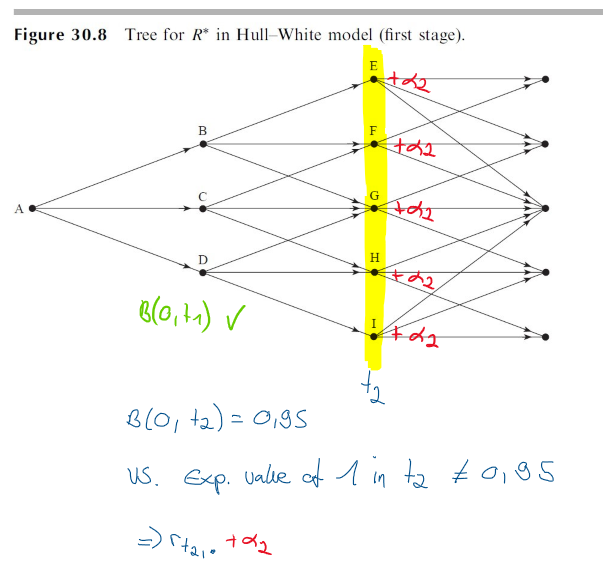 Figure 30.8 Tree for R* in Hull–White model (first stage).
E
+α2
B
F
+α2
A
C
G
+α2
D
H
+α2
B(0,t1) ✓
I
+α2
t2
B(0, t2) = 0,95
vs. Exp. value of 1 in t2 ≠ 0,95
⇒ rt2,• +α2